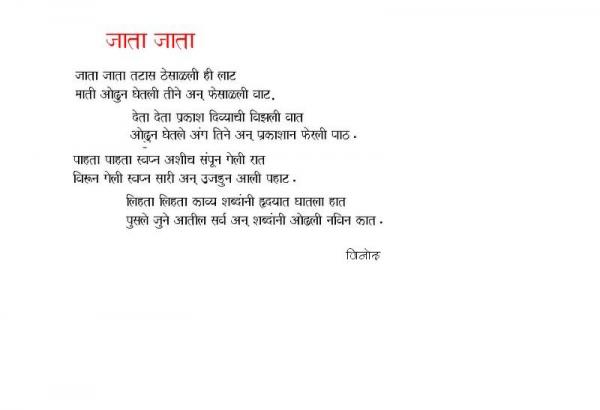 जाता जाता
जाता जाता तटास ठेसाळली ही लाट
माती ओढुन घेतली तीने अन् फेसाळली वाट.
देता देता प्रकाश दिव्याची विझली वात
ओढुन घेतले अंग तिने अन् प्रकाशान फेरली पाठ .
पाहता पाहता स्वप्न अशीच संपून गेली रात
विरून गेली स्वप्न सारी अन् उजडुन आली पहाट .
लिहता लिहता काव्य शब्दांनी हृदयात घातला हात
पुसले जुने आतील सर्व अन् शब्दांनी ओढली नविन कात .
विनोद